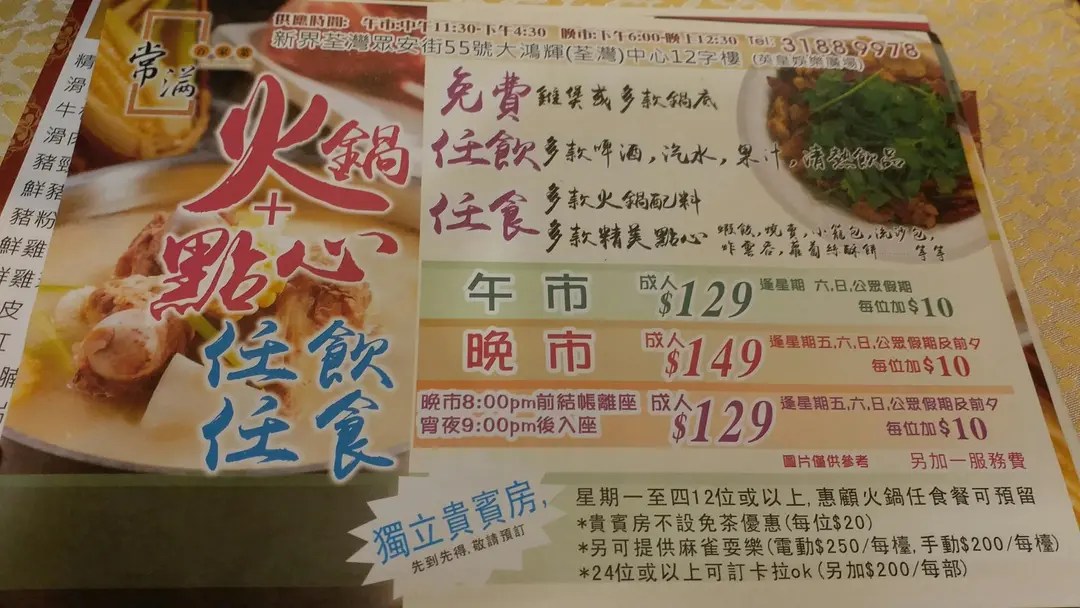 常滿
供應時間: 午市:中午11:30-下午4:30 晚市:下午6:00-晚上12:30 Tel: 3188 9978
新界荃灣眾安街55號大鴻輝(荃灣)中心12字樓 (英皇娛樂廣場)
火鍋
+
點心
任飲
任食
免費 雞煲或多款鍋底
任飲 多款啤酒,汽水,果汁,清熱飲品
任食 多款火鍋配料
多款精美點心 蝦餃,燒賣,小籠包,流沙包,
炸雲吞,蘿蔔絲酥餅 等等
午市 成人 $129 逢星期 六,日,公眾假期
每位加$10
晚市 成人 $149 逢星期五,六,日,公眾假期及前夕
每位加$10
晚市8:00pm前結帳離座
宵夜9:00pm後入座
成人 $129 逢星期五,六,日,公眾假期及前夕
每位加$10
圖片僅供參考 另加一服務費
獨立貴賓房,
先到先得,敬請預訂
星期一至四12位或以上,惠顧火鍋任食餐可預留
*貴賓房不設免茶優惠(每位$20)
*另可提供麻雀耍樂(電動$250/每檯,手動$200/每檯)
*24位或以上可訂卡拉ok(另加$200/每部)
精
滑
牛
滑肉
豬
鮮豬
豬粉
鮮雞
鮮雞
皮
紅